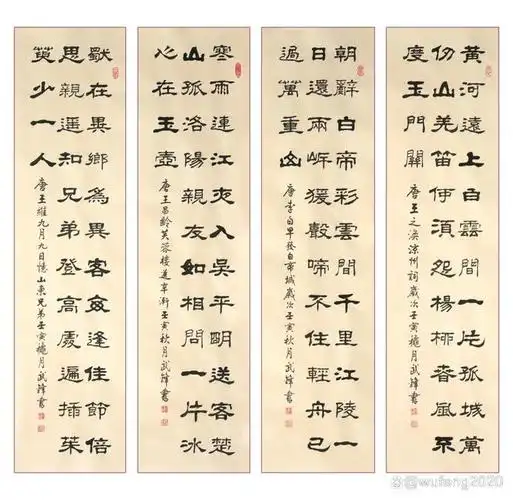 黃河遠上白雲間一片孤城萬
仞山羌笛何須怨楊柳春風不
度玉門關
唐王之渙涼州詞歲次壬寅穐月武鋒書
朝辭白帝彩雲間千里江陵一
日還兩岸猿聲啼不住輕舟已
過萬重山
唐李白早發白帝城歲次壬寅秋月武鋒書
寒雨連江夜入吳平明送客楚
山孤洛陽親友如相問一片冰
心在玉壺
唐王昌齡芙蓉樓送辛漸壬寅秋月武鋒書
獨在異鄉為異客每逢佳節倍
思親遥知兄弟登高處遍插茱
萸少一人
唐王維九月九日憶山東兄弟壬寅穐月武鋒書
@wufeng2020